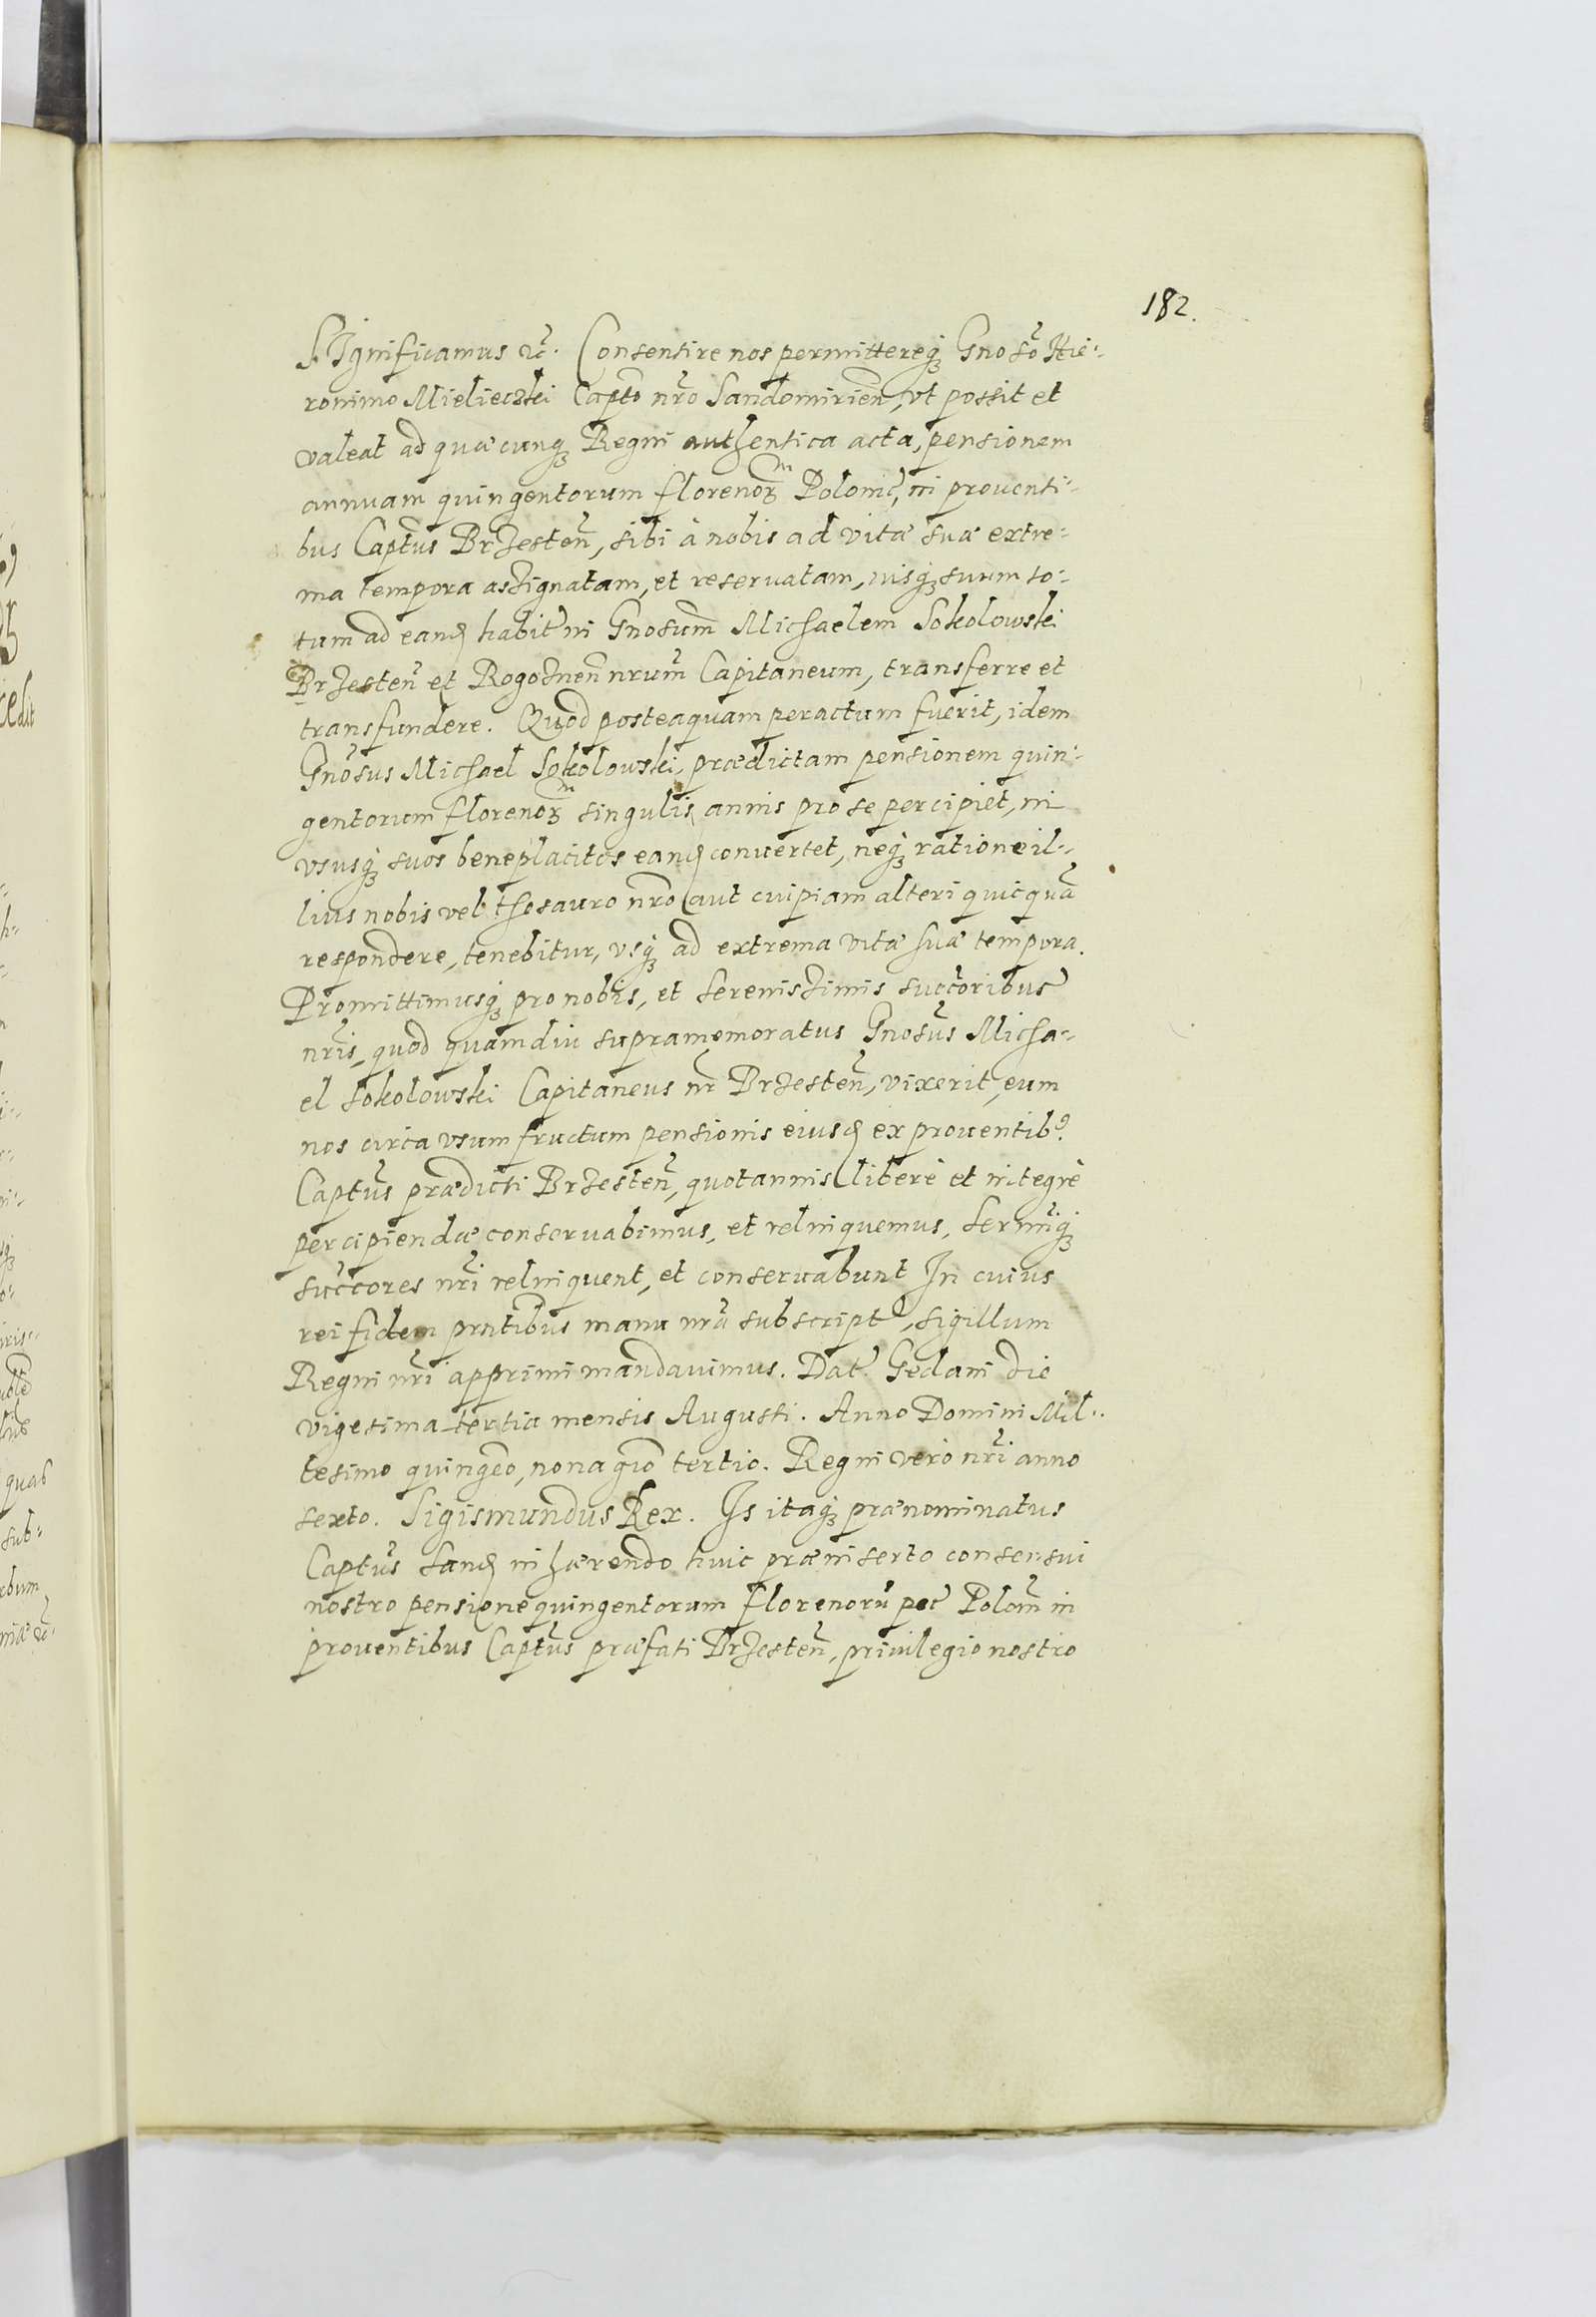 182.
SIgnificamus &c̃. Consentire nos permittereq́ꝫ Gnosõ Hie-
ronimo Mielieczki Captõ nr̃o Sandomirieñ, vt possit et
valeat ad quæcunqꝫ Regni authentica acta, pensionem
annuam quingentorum florenorꝫ Polonić, in prouenti-
bus Captũs Brzesteñ, sibi à nobis ad vitæ suæ extre-
ma tempora assignatam, et reseruatam, iusq́ꝫ suum to-
tum ad eanđ habit́ in Gnosum̃ Michaelem Sokolowski
Brzesteñ et Rogoźneñ nrum̃ Capitaneum, transferre et
transfundere. Quod posteaquam peractum fuerit, idem
Gnõsus Michael Sokolowski, prædictam pensionem quin-
gentorum florenorꝫ singulis annis pro se percipiet, in
vsusq́ꝫ suos beneplacitos eanđ conuertet, neq́ꝫ ratione il-
lius nobis vel thesauro nr̃o aut cuipiam alteri quicquã
respondere, tenebitur, vsq́ꝫ ad extrema vitæ suæ tempora.
Promittimusq́ꝫ pro nobis, et serenissimis succ̃oribus
nr̃is, quod quamdiu supramemoratus Gnosũs Micha-
el Sokolowski Capitaneus nr̃ Brzesteñ, vixerit, eum
nos circa vsumfructum pensionis eiusđ ex prouentibꝰ
Captũs prædicti Brzesteñ, quotannis liberè et integrè
percipiendæ conseruabimus, et relinquemus, sermĩq́ꝫ
succ̃ores nr̃i relinquent, et conseruabunt In cuius
rei fidem pn̄tibus manu nr̃a subscript́, sigillum
Regni nr̃i apprimi mandauimus. Dat́ Gedani die
vigesima tertia mensis Augusti. Anno Domini Mil-
lesimo quingẽo, nonagĩo tertio. Regni verò nr̃i anno
sexto. Sigismundus Rex. Is itaq́ꝫ prænominatus
Captũs Sanđ inhærendo huic præinserto consensui
nostro pensione quingentorum florenorũ pec̃ Polon̄ in
prouentibus Captũs præfati Brzesteñ, priuilegio nostro